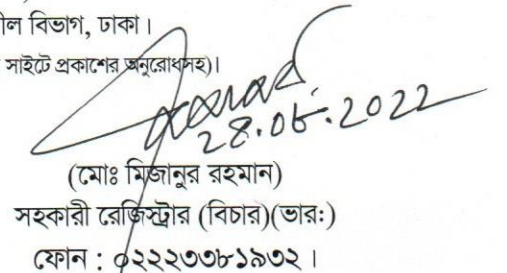 ীল বিভাগ, ঢাকা।
সাইটে প্রকাশের অনুরোধসহ)।
28.08.2022
(মোঃ মিজানুর রহমান)
সহকারী রেজিস্ট্রার (বিচার)(ভার:)
ফোন : ০২২২৩৩৮১৯৩২।